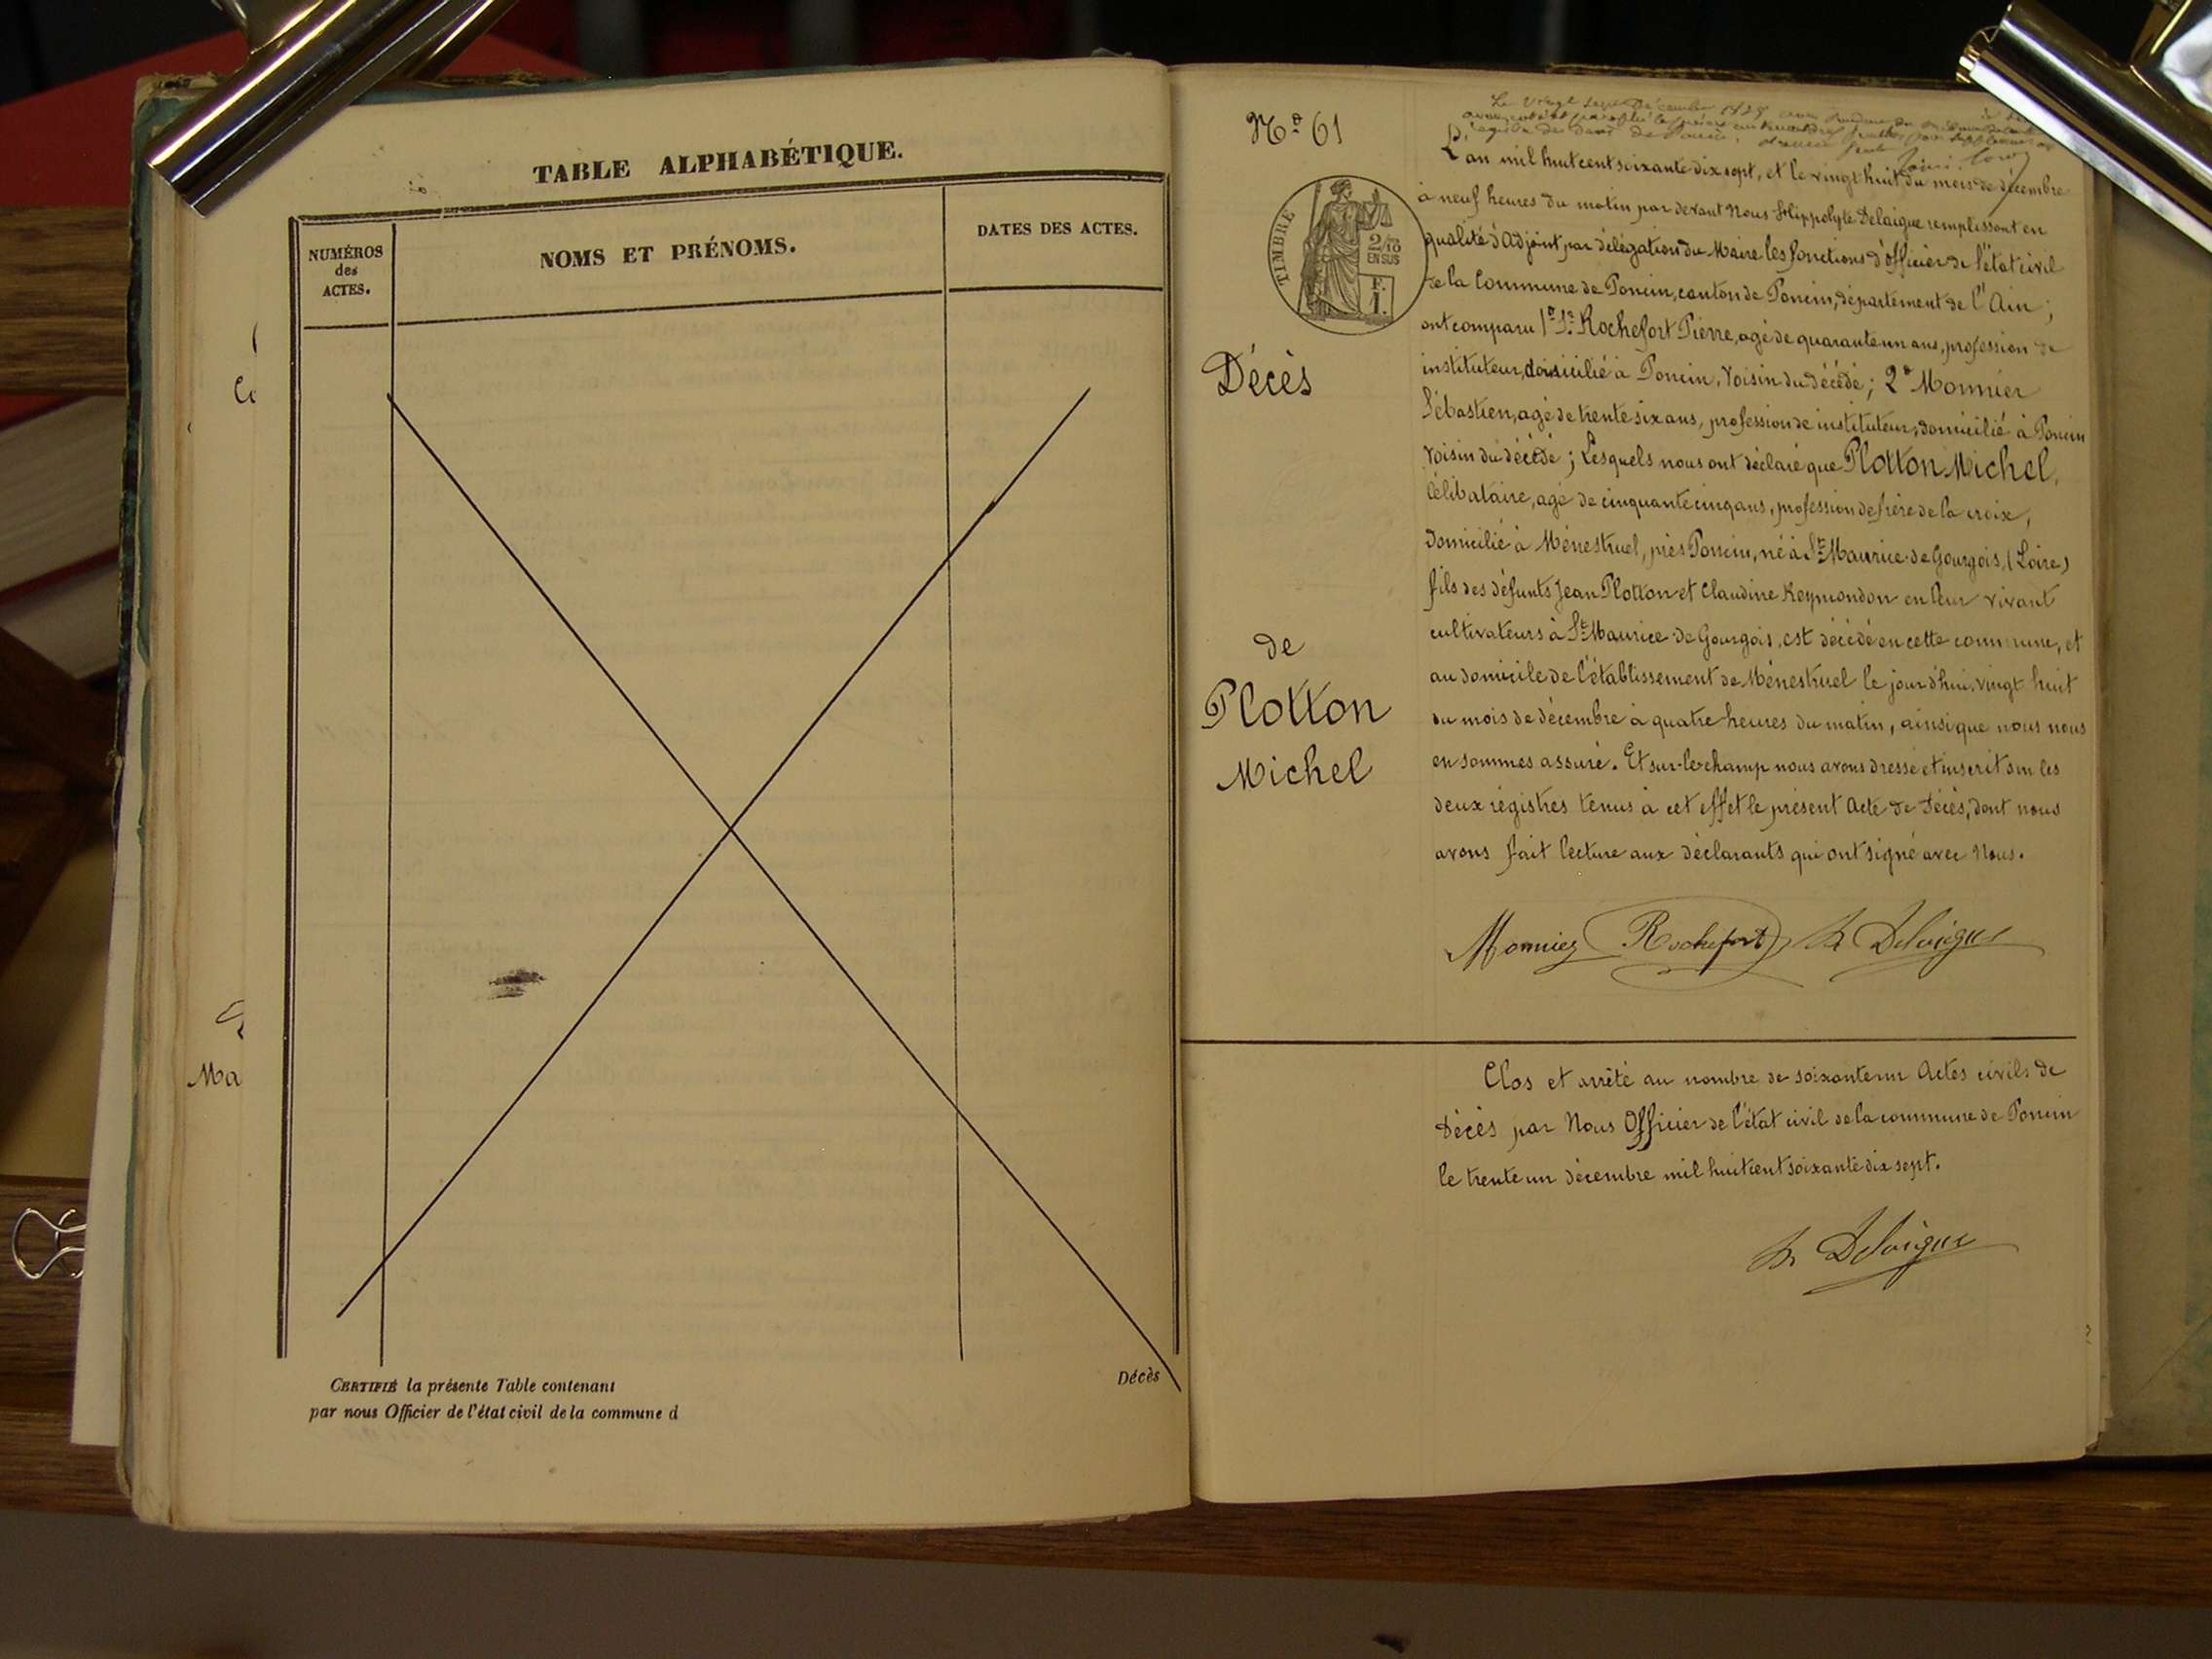 TABLE ALPHABÉTIQUE.
NUMÉROS
des
ACTES.
NOMS ET PRÉNOMS.
DATES DES ACTES.
Ma
CERTIFIÉ la présente Table contenant
Décès
par nous Officier de l'état civil de la commune d
Nº 61
TIMBRE
2/10
EN SUS
F.
1.
Décès
de
Plotton
Michel
Le vingt sept décembre
L'an mil huit cent soixante dix sept, et le vingt huit du mois de décembre
à neuf heures du matin par devant Nous Hippolyte Delaigue remplissant en
qualité d'Adjoint par délégation du Maire les fonctions d'officier de l'état civil
de la Commune de Poncin, canton de Poncin, département de l'Ain ;
ont comparu 1º Sr. Rochefort Pierre, agé de quarante un ans, profession de
instituteur, domicilié à Poncin, voisin du décédé ; 2º Monnier
Sébastien, agé de trente six ans, profession de instituteur, domicilié à Poncin
voisin du décédé ; Lesquels nous ont déclaré que Plotton Michel,
Célibataire, agé de cinquante cinq ans, profession de frère de la croix,
domicilié à Ménestruel, près Poncin, né à St Maurice de Gourgois, (Loire)
fils des défunts Jean Plotton et Claudine Reymondon en leur vivant
cultivateurs à St Maurice de Gourgois, est décédé en cette commune, et
au domicile de l'établissement de Ménestruel le jour d'hui, vingt huit
du mois de décembre à quatre heures du matin, ainsi que nous nous
en sommes assuré. Et sur-le-champ nous avons dressé et inscrit sur les
deux régistres tenus à cet effet le présent Acte de décès, dont nous
avons fait lecture aux déclarants qui ont signé avec Nous.
Monnier Rochefort h Delaigue
Clos et arrêté au nombre de soixante un Actes civils de
Décès par Nous Officier de l'état civil de la commune de Poncin
le trente un décembre mil huit cent soixante dix sept.
h Delaigue